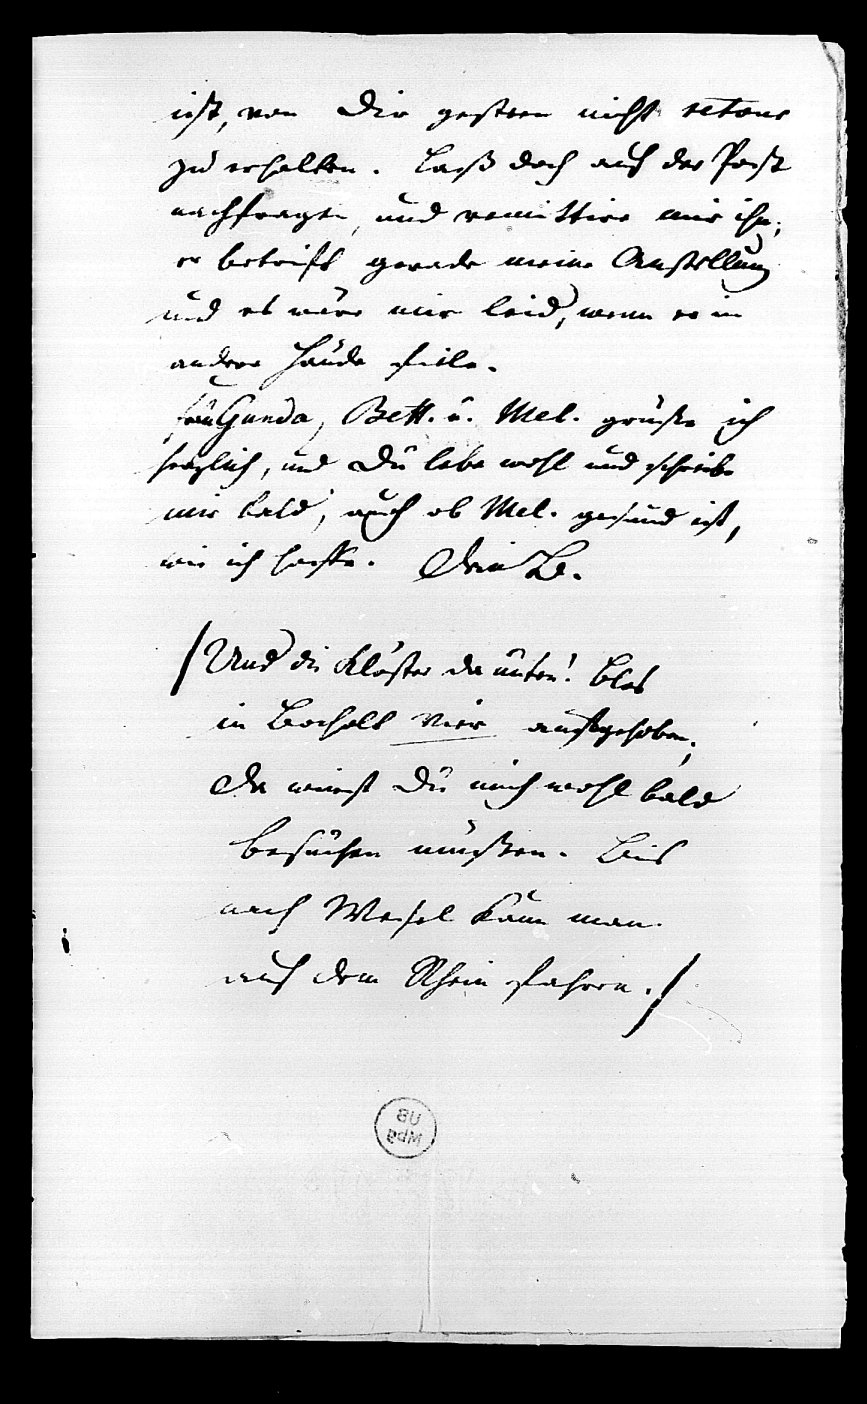 ist, von Dir gestern nicht retour
zu erhalten. Laß doch auf der Post
nachfragen, und remittire mir ihn;
er betrift gerade meine Anstellung
und es wäre mir leid, wenn er in
andere Hände fiele.
Gunda, Bett. u. Mel. grüße ich
herzlich, und Du lebe wohl und schreibe
mir bald, auch ob Mel. gesund ist,
wie ich hoffe. Dein
/Und die Klöster da unten! Blos
in Bocholt vier aufgehoben;
Da wirst Du mich wohl bald
besuchen müßen. Bis
nach Wesel kann man
auf dem Rhein fahren./
UB
Mbg